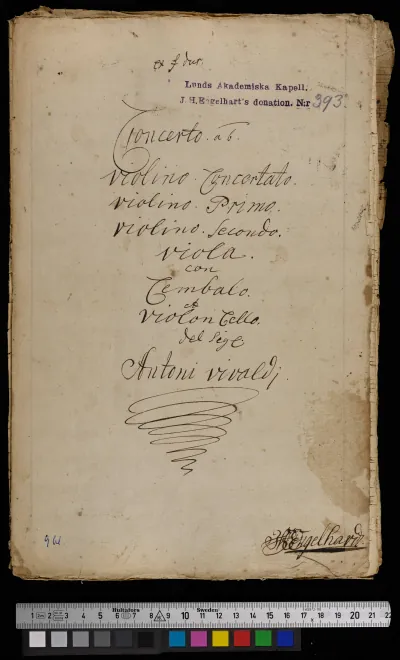 ex f dur.
Lunds Akademiska Kapell.
J.H. Engelhart's donation. N:r 393.
Concerto. a 6.
violino. Concertato.
violino. Primo.
violino. Secondo.
viola.
con
Cembalo.
et
violon Cello.
del Sigr.
Antoni vivaldi.
Engelhardt
Hultafors
Sweden
1 2 3 4 5 6 7 8 9 10 11 12 13 14 15 16 17 18 19 20 21 22